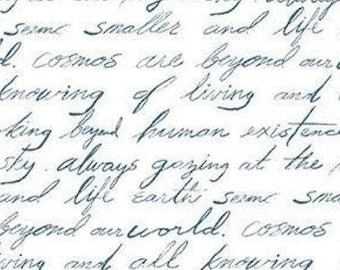 seems smaller and life
d. cosmos are beyond our
knowing of living and
oking beyond human existence
sky. always gazing at the
and life earth seems sma
beyond our world. cosmos
iving and all knowing